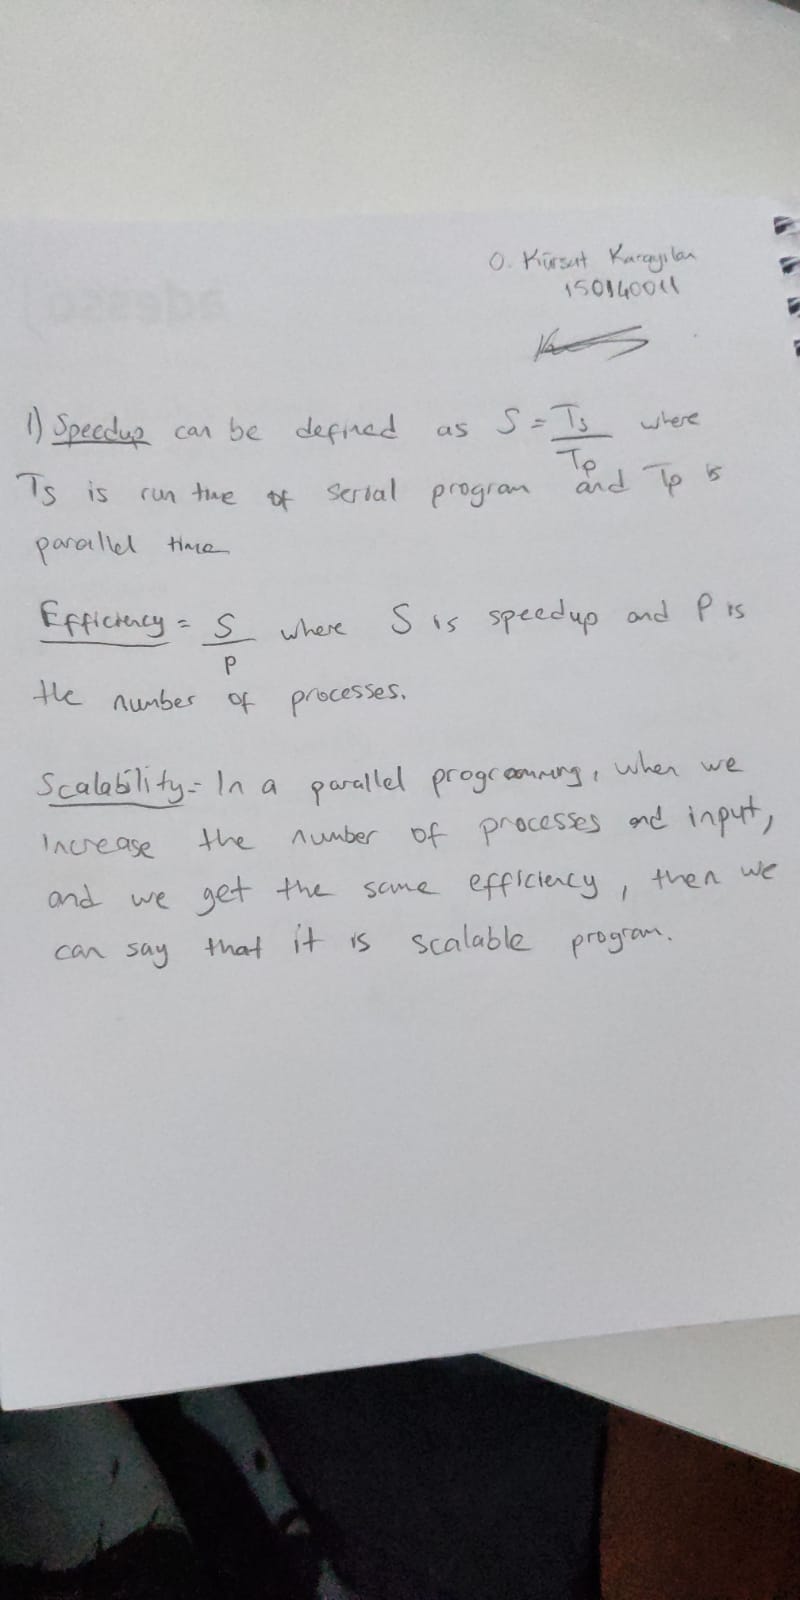 O. Kürşat Karayılan
150140011
1) Speedup can be defined as S = Ts / Tp where
Ts is run time of serial program and Tp is
parallel time
Efficiency = S / P where S is speedup and P is
the number of processes.
Scalability = In a parallel programming, when we
increase the number of processes and input,
and we get the same efficiency, then we
can say that it is scalable program.